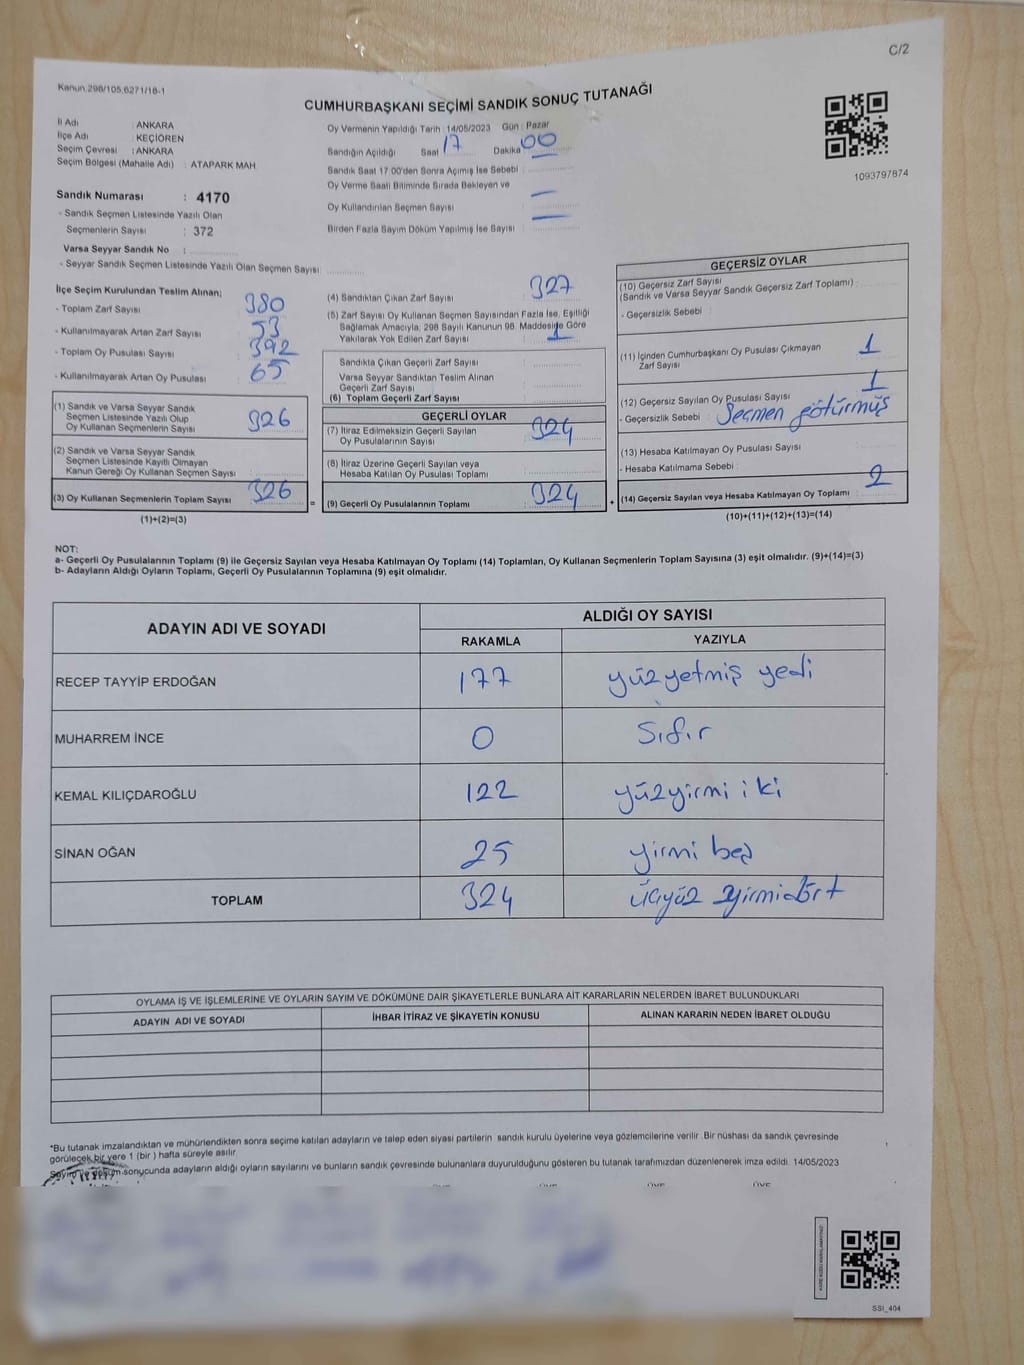 C/2
Kanun.298/105,6271/18-1
CUMHURBAŞKANI SEÇİMİ SANDIK SONUÇ TUTANAĞI
1093797874
İl Adı : ANKARA
İlçe Adı : KEÇİÖREN
Seçim Çevresi : ANKARA
Seçim Bölgesi (Mahalle Adı) : ATAPARK MAH
Sandık Numarası : 4170
- Sandık Seçmen Listesinde Yazılı Olan
Seçmenlerin Sayısı : 372
Varsa Seyyar Sandık No :
- Seyyar Sandık Seçmen Listesinde Yazılı Olan Seçmen Sayısı
Oy Vermenin Yapıldığı Tarih : 14/05/2023 Gün : Pazar
Sandığın Açıldığı Saat 17 Dakika 00
Sandık Saat 17.00'den Sonra Açılmış İse Sebebi :
Oy Verme Saati Bitiminde Sırada Bekleyen ve
Oy Kullandırılan Seçmen Sayısı : —
Birden Fazla Sayım Döküm Yapılmış İse Sayısı : —
İlçe Seçim Kurulundan Teslim Alınan;
- Toplam Zarf Sayısı : 380
- Kullanılmayarak Artan Zarf Sayısı : 53
- Toplam Oy Pusulası Sayısı : 392
- Kullanılmayarak Artan Oy Pusulası : 65
(1) Sandık ve Varsa Seyyar Sandık
Seçmen Listesinde Yazılı Olup
Oy Kullanan Seçmenlerin Sayısı 326
(2) Sandık ve Varsa Seyyar Sandık
Seçmen Listesinde Kayıtlı Olmayan
Kanun Gereği Oy Kullanan Seçmen Sayısı
(3) Oy Kullanan Seçmenlerin Toplam Sayısı 326
(1)+(2)=(3)
(4) Sandıktan Çıkan Zarf Sayısı : 327
(5) Zarf Sayısı Oy Kullanan Seçmen Sayısından Fazla İse, Eşitliği
Sağlamak Amacıyla, 298 Sayılı Kanunun 98. Maddesine Göre
Yakılarak Yok Edilen Zarf Sayısı : 1
Sandıkta Çıkan Geçerli Zarf Sayısı :
Varsa Seyyar Sandıktan Teslim Alınan
Geçerli Zarf Sayısı
(6) Toplam Geçerli Zarf Sayısı
GEÇERLİ OYLAR
(7) İtiraz Edilmeksizin Geçerli Sayılan
Oy Pusulalarının Sayısı : 324
(8) İtiraz Üzerine Geçerli Sayılan veya
Hesaba Katılan Oy Pusulası Toplamı
=
(9) Geçerli Oy Pusulalarının Toplamı 324
+
GEÇERSİZ OYLAR
(10) Geçersiz Zarf Sayısı
(Sandık ve Varsa Seyyar Sandık Geçersiz Zarf Toplamı) :
- Geçersizlik Sebebi :
(11) İçinden Cumhurbaşkanı Oy Pusulası Çıkmayan
Zarf Sayısı 1
(12) Geçersiz Sayılan Oy Pusulası Sayısı 1
- Geçersizlik Sebebi : Seçmen götürmüş
(13) Hesaba Katılmayan Oy Pusulası Sayısı
- Hesaba Katılmama Sebebi :
(14) Geçersiz Sayılan veya Hesaba Katılmayan Oy Toplamı : 2
(10)+(11)+(12)+(13)=(14)
NOT:
a- Geçerli Oy Pusulalarının Toplamı (9) ile Geçersiz Sayılan veya Hesaba Katılmayan Oy Toplamı (14) Toplamları, Oy Kullanan Seçmenlerin Toplam Sayısına (3) eşit olmalıdır. (9)+(14)=(3)
b- Adayların Aldığı Oyların Toplamı, Geçerli Oy Pusulalarının Toplamına (9) eşit olmalıdır.
ADAYIN ADI VE SOYADI
ALDIĞI OY SAYISI
RAKAMLA YAZIYLA
RECEP TAYYİP ERDOĞAN 177 yüzyetmiş yedi
MUHARREM İNCE 0 Sıfır
KEMAL KILIÇDAROĞLU 122 yüzyirmi iki
SİNAN OĞAN 25 yirmi beş
TOPLAM 324 üçyüz yirmidört
OYLAMA İŞ VE İŞLEMLERİNE VE OYLARIN SAYIM VE DÖKÜMÜNE DAİR ŞİKAYETLERLE BUNLARA AİT KARARLARIN NELERDEN İBARET BULUNDUKLARI
ADAYIN ADI VE SOYADI İHBAR İTİRAZ VE ŞİKAYETİN KONUSU ALINAN KARARIN NEDEN İBARET OLDUĞU
*Bu tutanak imzalandıktan ve mühürlendikten sonra seçime katılan adayların ve talep eden siyasi partilerin sandık kurulu üyelerine veya gözlemcilerine verilir. Bir nüshası da sandık çevresinde
görülecek bir yere 1 (bir ) hafta süreyle asılır.
Sayım ve döküm sonucunda adayların aldığı oyların sayılarını ve bunların sandık çevresinde bulunanlara duyurulduğunu gösteren bu tutanak tarafımızdan düzenlenerek imza edildi. 14/05/2023
ÜYE ÜYE ÜYE ÜYE
SSI_404